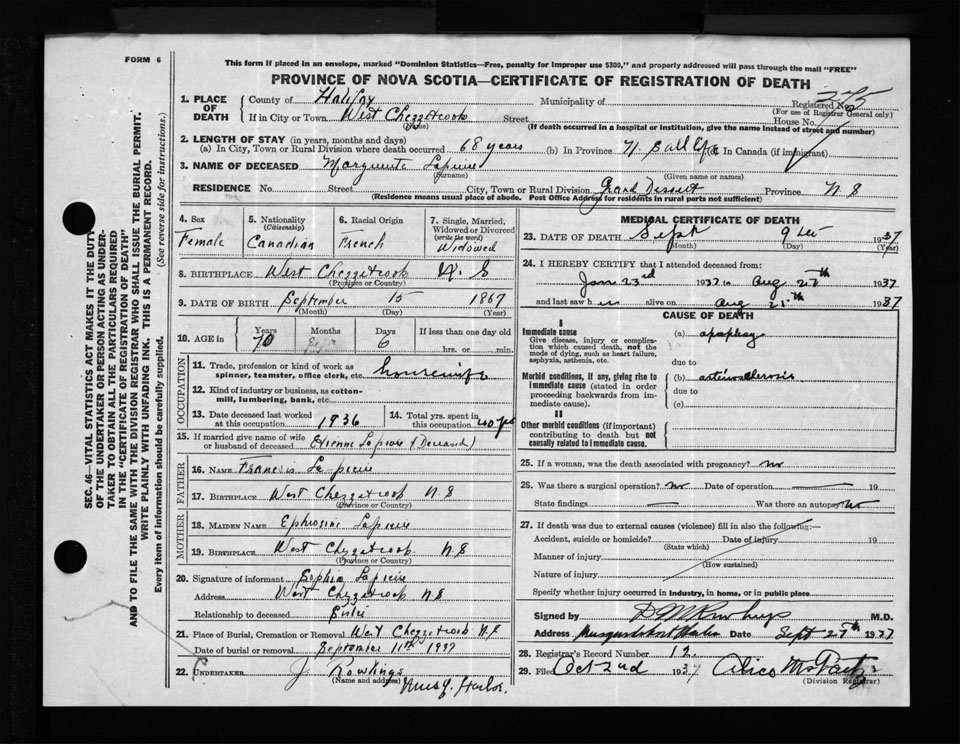 FORM 6
This form if placed in an envelope, marked "Dominion Statistics—Free, penalty for improper use $300," and properly addressed will pass through the mail "FREE"
PROVINCE OF NOVA SCOTIA—CERTIFICATE OF REGISTRATION OF DEATH
SEC. 46—VITAL STATISTICS ACT MAKES IT THE DUTY
OF THE UNDERTAKER OR PERSON ACTING AS UNDER-
TAKER TO OBTAIN ALL THE PARTICULARS REQUIRED
IN THE "CERTIFICATE OF REGISTRATION OF DEATH"
AND TO FILE THE SAME WITH THE DIVISION REGISTRAR WHO SHALL ISSUE THE BURIAL PERMIT.
WRITE PLAINLY WITH UNFADING INK. THIS IS A PERMANENT RECORD.
Every item of information should be carefully supplied. (See reverse side for instructions.)
1. PLACE OF DEATH County of Halifax Municipality of Registered No. 375
(For use of Registrar General only)
If in City or Town West Chezzetcook Street House No.
(Name) (If death occurred in a hospital or institution, give the name instead of street and number)
2. LENGTH OF STAY (in years, months and days)
(a) In City, Town or Rural Division where death occurred 68 years (b) In Province N. S all life (c) In Canada (if immigrant)
3. NAME OF DECEASED Marguerite Lapierre
(Surname) (Given name or names)
RESIDENCE No. Street City, Town or Rural Division Grand Desert Province N S
(Residence means usual place of abode. Post Office Address for residents in rural parts not sufficient)
4. Sex Female
5. Nationality (Citizenship) Canadian
6. Racial Origin French
7. Single, Married, Widowed or Divorced (write the word) Widowed
8. BIRTHPLACE West Chezzetcook N. S
(Province or Country)
9. DATE OF BIRTH September 15 1867
(Month) (Day) (Year)
10. AGE in Years 70 Months Days 6 If less than one day old
hrs. or min.
OCCUPATION
11. Trade, profession or kind of work as spinner, teamster, office clerk, etc. housewife
12. Kind of industry or business, as cotton-mill, lumbering, bank, etc.
13. Date deceased last worked at this occupation 1936 14. Total yrs. spent in this occupation 40 yrs
15. If married give name of wife or husband of deceased Etienne Lapierre (Deceased)
FATHER
16. NAME Francis La-pierre
17. BIRTHPLACE West Chezzetcook N. S
(Province or Country)
MOTHER
18. MAIDEN NAME Ephrosine Lapierre
19. BIRTHPLACE West Chezzetcook N. S
(Province or Country)
20. Signature of informant Sophia Lapierre
Address West Chezzetcook N S
Relationship to deceased Sister
21. Place of Burial, Cremation or Removal West Chezzetcook N. S
Date of burial or removal September 11th 1937
22. UNDERTAKER J Rowlings
(Name and address) Musq. Harbor.
MEDICAL CERTIFICATE OF DEATH
23. DATE OF DEATH Sept 9th 1937
(Month) (Day) (Year)
24. I HEREBY CERTIFY that I attended deceased from:
Jan 23rd 1937 to Aug 25th 1937
and last saw her alive on Aug 25th 1937
CAUSE OF DEATH
I
Immediate cause (a) apoplexy
Give disease, injury or complication which caused death, not the mode of dying, such as heart failure, asphyxia, asthenia, etc.
due to
Morbid conditions, if any, giving rise to immediate cause (stated in order proceeding backwards from immediate cause). (b) arteriosclerosis
due to
(c)
II
Other morbid conditions (if important) contributing to death but not causally related to immediate cause.
25. If a woman, was the death associated with pregnancy? no
26. Was there a surgical operation? no Date of operation 19
State findings Was there an autopsy? no
27. If death was due to external causes (violence) fill in also the following:—
Accident, suicide or homicide? Date of injury 19
(State which)
Manner of injury
(How sustained)
Nature of injury
Specify whether injury occurred in industry, in home, or in public place
Signed by M.D.
Address Date Sept 27th 1937
28. Registrar's Record Number 12.
29. Filed Oct 2nd 1937 Alice
(Division Registrar)